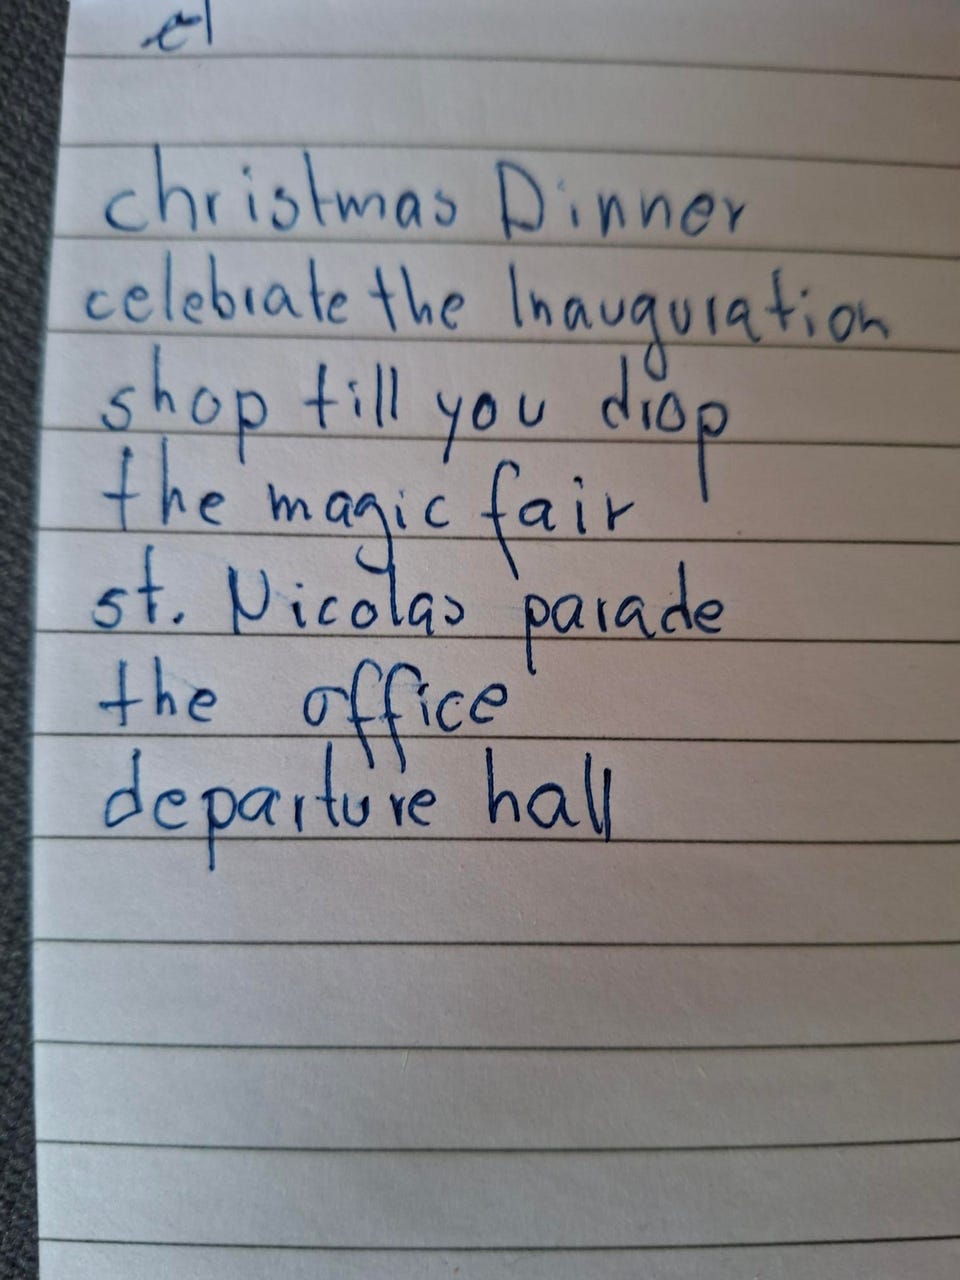 christmas Dinner
celebrate the Inauguration
shop till you drop
the magic fair
st. Nicolas parade
the office
departure hall